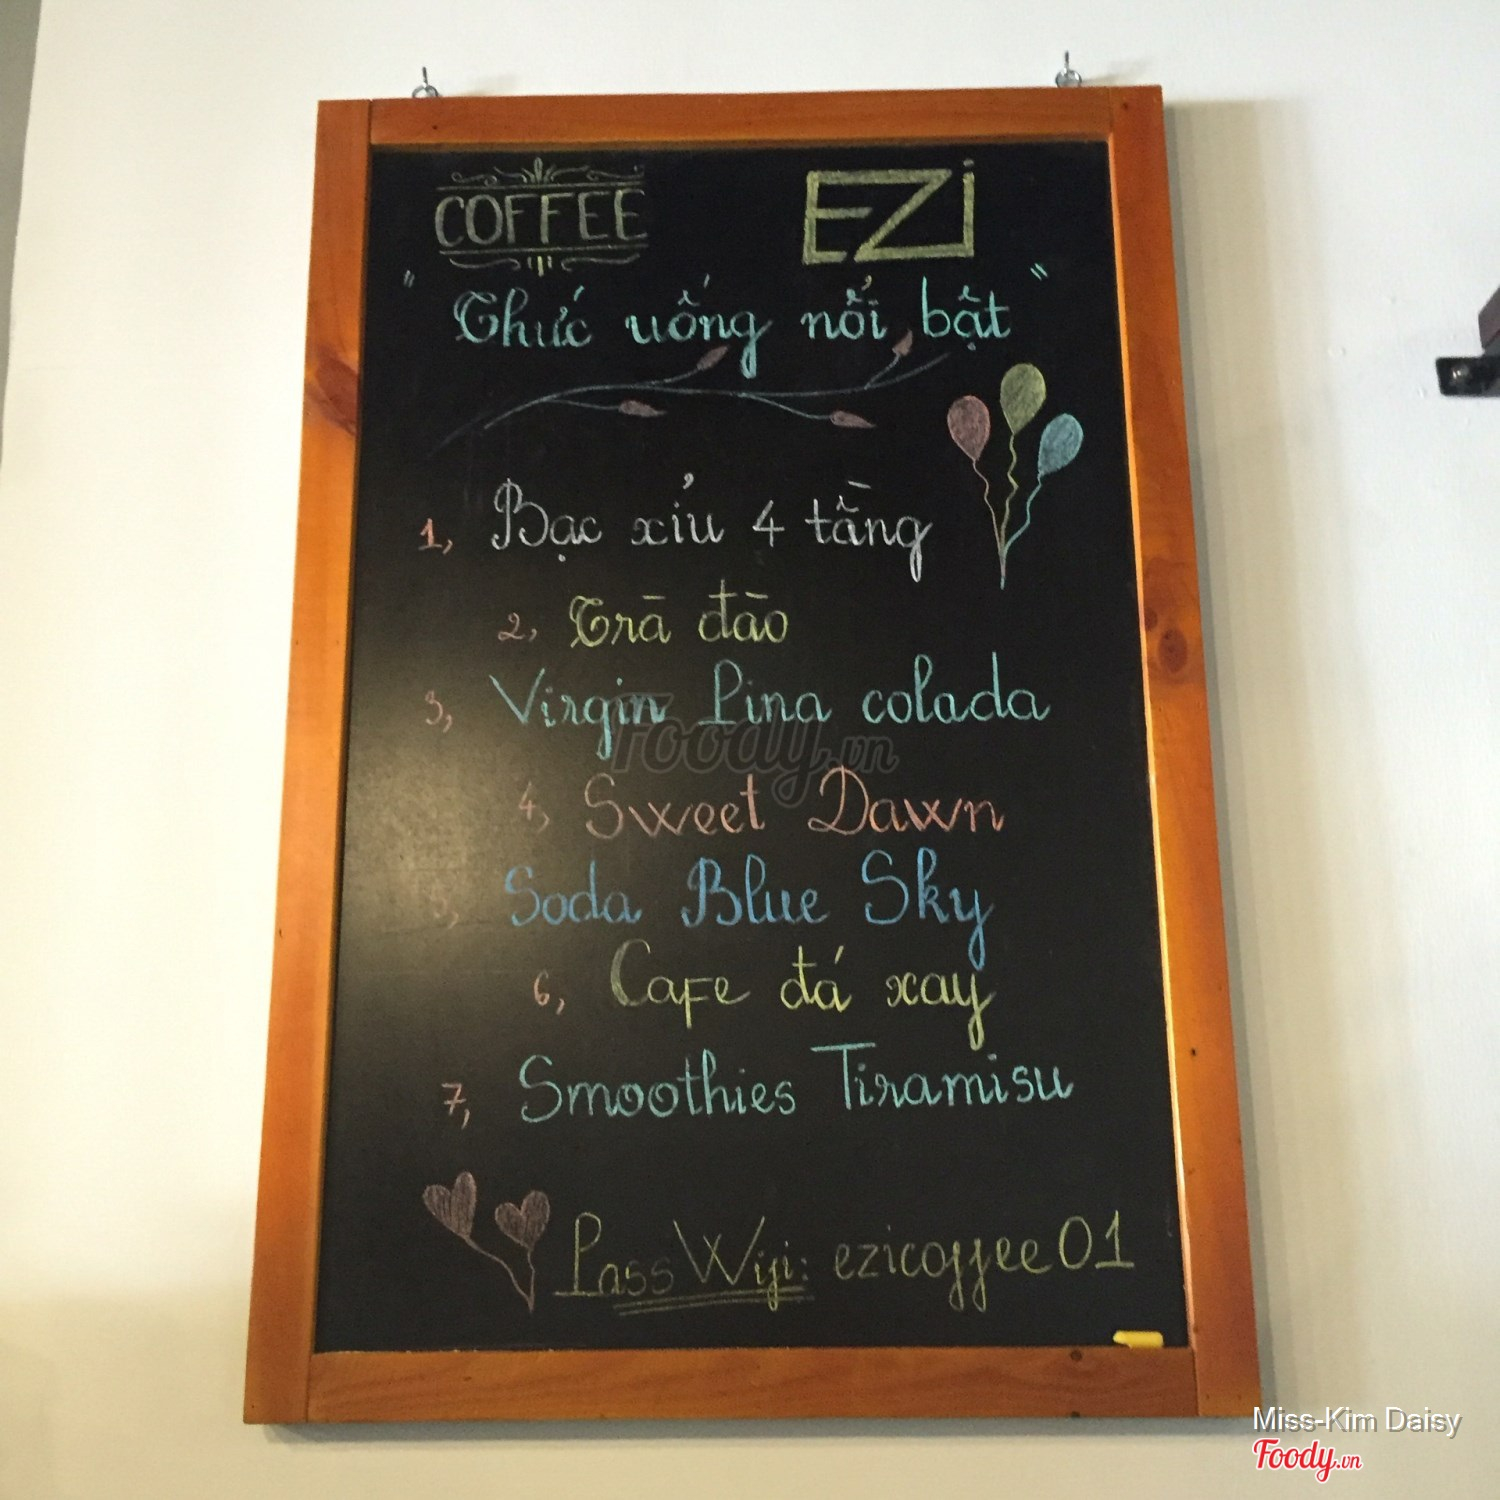 COFFEE EZi
"Thức uống nổi bật"
1, Bạc xỉu 4 tầng
2, Trà đào
3, Virgin Pina colada
4, Sweet Dawn
5, Soda Blue Sky
6, Cafe đá xay
7, Smoothies Tiramisu
Pass Wifi: ezicoffee01
Foody.vn
Miss-Kim Daisy
Foody.vn